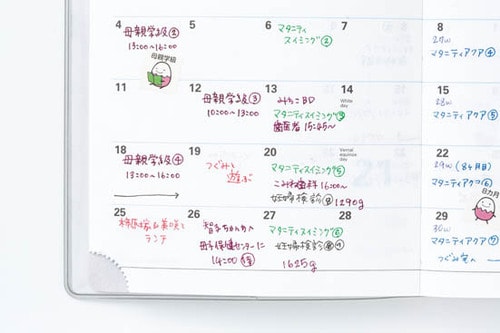 4
母親学級②
13:00~16:00
母親学級
5
6
マタニティ
スイミング②
7
8
27w
マタニティアクア④
11
12
母親学級③
10:00~13:00
13
みわこBD
マタニティスイミング
歯医者 15:45~
14
White
day
15
28w
マタニティアクア⑤
18
母親学級④
13:00~16:00
19
つぐみと
遊ぶ
20
マタニティスイミング⑤
こみね歯科 16:00~
妊婦検診⑧ 1290g
21
Vernal
equinox
day
22
29w(8ヶ月目)
マタニティアクア⑥
8カ月
25
美咲と
ランチ
26
智子ちゃんち
母子保健センターに
14:00
27
マタニティスイミング⑥
妊婦検診
1625g
28
29
30w
マタニティアクア⑦
つぐみ宅へ